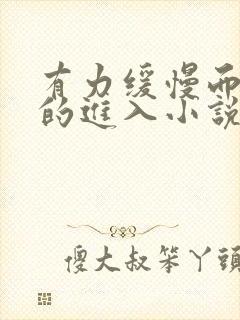 有力缓慢而
的进入小説
傻大叔笨丫頭